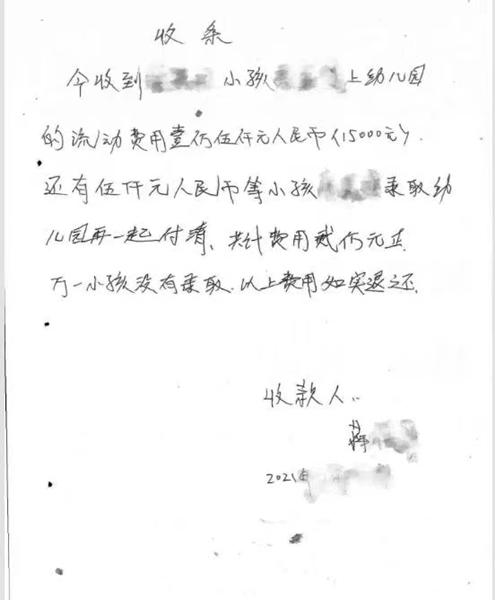 收条
今收到 小孩 上幼儿园
的流动费用壹仂伍仟元人民币(15000元).
还有伍仟元人民币等小孩 录取幼
儿园再一起付清、共计费用贰仂元正
万一小孩没有录取.以上费用如实退还.
收款人..
蒋
2021年